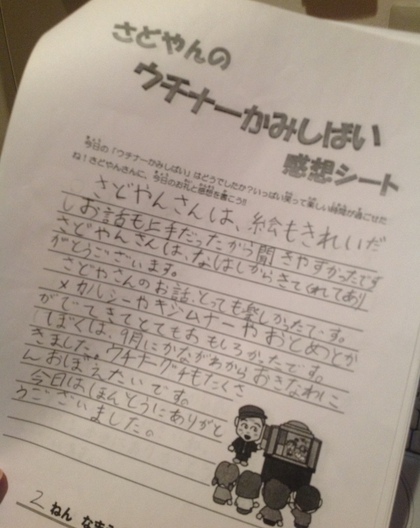 さどやんの
ウチナーかみしばい
感想シート
今日の「ウチナーかみしばい」はどうでしたか?いっぱい笑って楽しい時間が過ごせた
ね!さどやんさんに、今日のお礼と感想を書こう!!
さどやんさんは、絵もきれいだ
しお話も上手だったから聞きやすかったです
さどやんさんは、なはしからきてくれてあり
がとうございます。
さどやさんのお話とっても楽しかったです。
メカルシーやキジムナーやおとめとか
がでてきてとてもおもしろかったです。
ぼくは、9月にかながわからおきなわに
きました。ウチナーグチもたくさ
んおぼえたいです。
今日はほんとうにありがと
うございました。
2 ねん なまえ